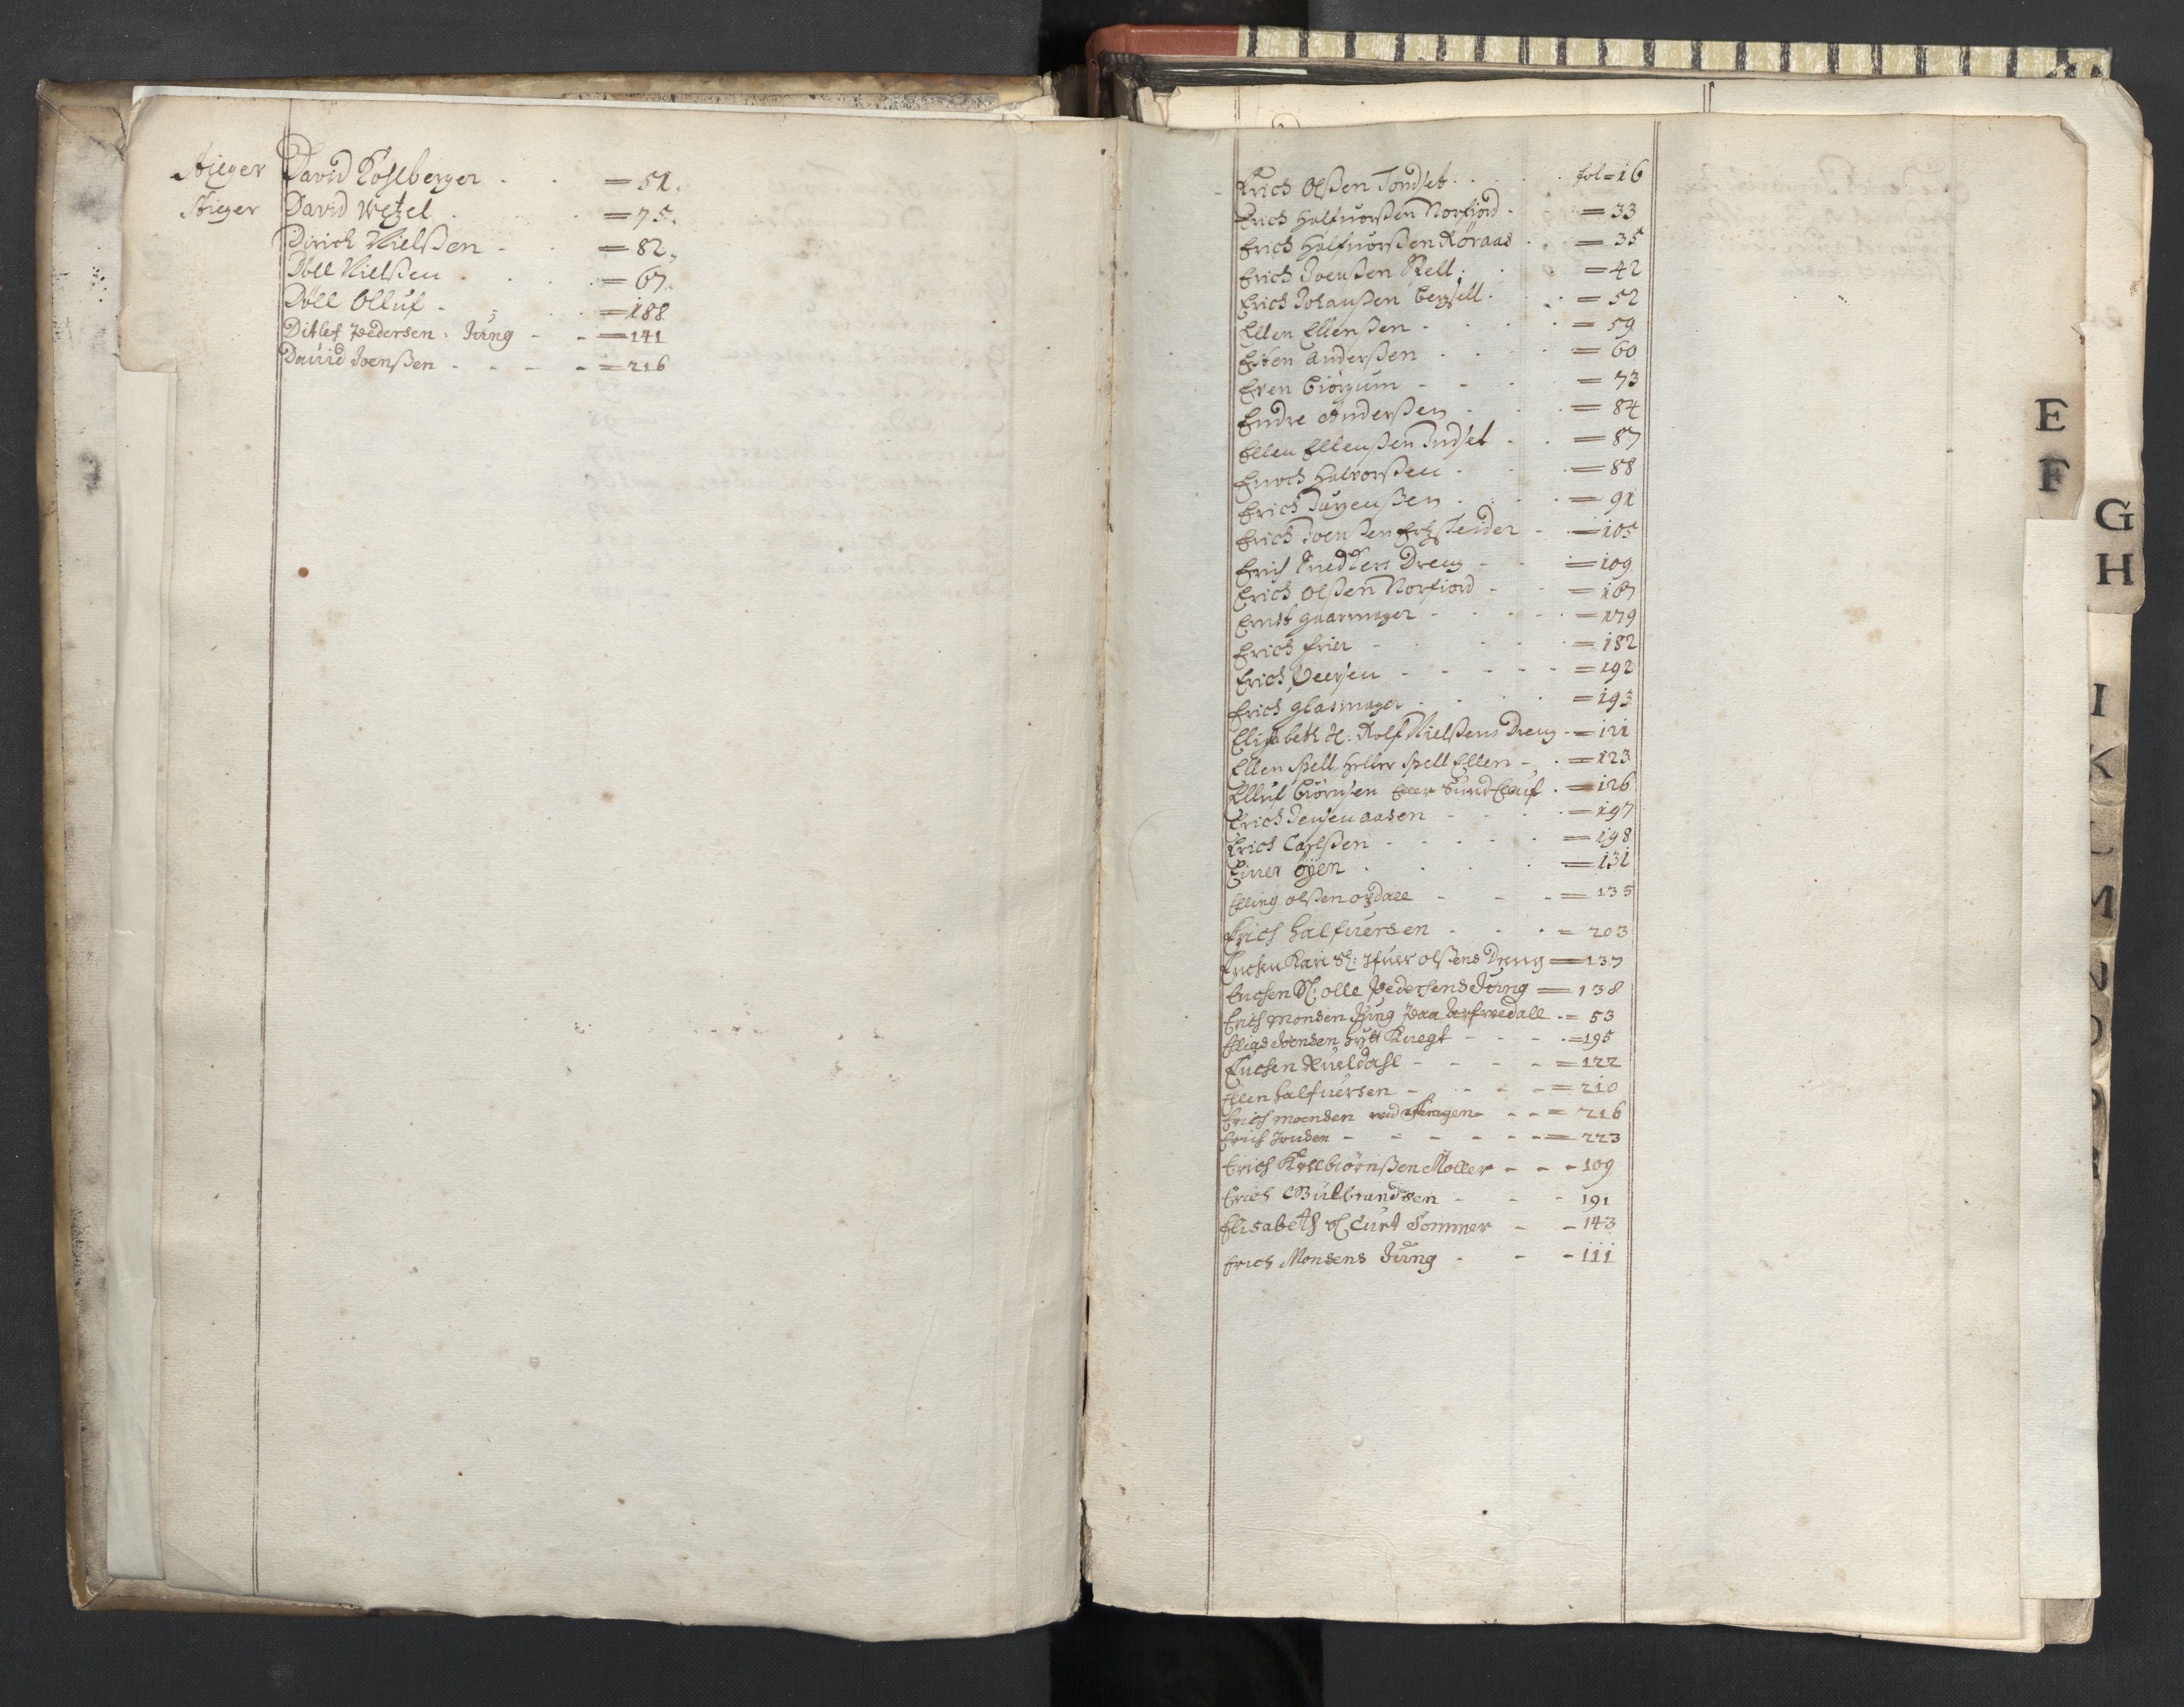 Stieger David Kohlberger . . = 51.
Stieger David Wetzel . . = 75.
Dirich Nielßen - . = 82.
Döll Nielßen . . = 67.
Döll Olluf - . . = 188
Ditlef Pedersen Jung - - = 141
David Joenßen - - - - = 216
Erich Olßen Tondset . . . fol = 16
Erich Halfuorßen Norfiord . = 33
Erich Halfuorßen Röraas . . = 35
Erich Joenßen Skell . . = 42
Erich Johanßen Bergsell . . = 52
Ellen Ellenßen - . . . = 59
Esten Anderßen . . . = 60
Even Biörgum - - . = 73
Endre Anderßen . . . = 84
Ellen Ellenßen Indset - . = 87
Enoch Halvorßen . . = 88
Erich Jürgenßen . . . = 91
Erich Joenßen Ertzscheider - = 105
Erich Snedkers Dreng - . = 109
Erich Olßen Norfiord - - = 187
Ernst Gaarmager - . . . = 179
Erich Frier - . . . = 182
Erich - - - - - = 192
Erich Glasmager . . . = 193
Elisabeth Rolf Nielßens Dreng - = 121
Ellen Spell heller Spell Ellen - . = 123
Elluf Biörnsen Eller Sund Elluf . = 126
Erich Jensen Aasen - . . = 197
Erich Carlßen - - - . . = 198
Einer Öyen . . . . = 131
Elling Olßen Opdall - - - = 135
Erich Halfuersen . . . = 203
Enchen Kari Sl: Ifuer Olßens Dreng = 137
Enchen Sl. Olle Pedersens Jung = 138
Erich Monsen Jung paa . = 53
Elias Joensen Hytt Knegt - - - . = 195
Enchen - - - - = 122
Ellen Halfuersen - - - - = 210
Erich Moensen ved - - = 216
Erich Jonsen - - - - - = 223
Erich Møller - - - 109
Erich Gulbrandsen - - - 191
Elisabeth Sl Curt Sommer - - 143
Erich Monsens Jung - - - 111
E
F
G
H
I
K
L
M